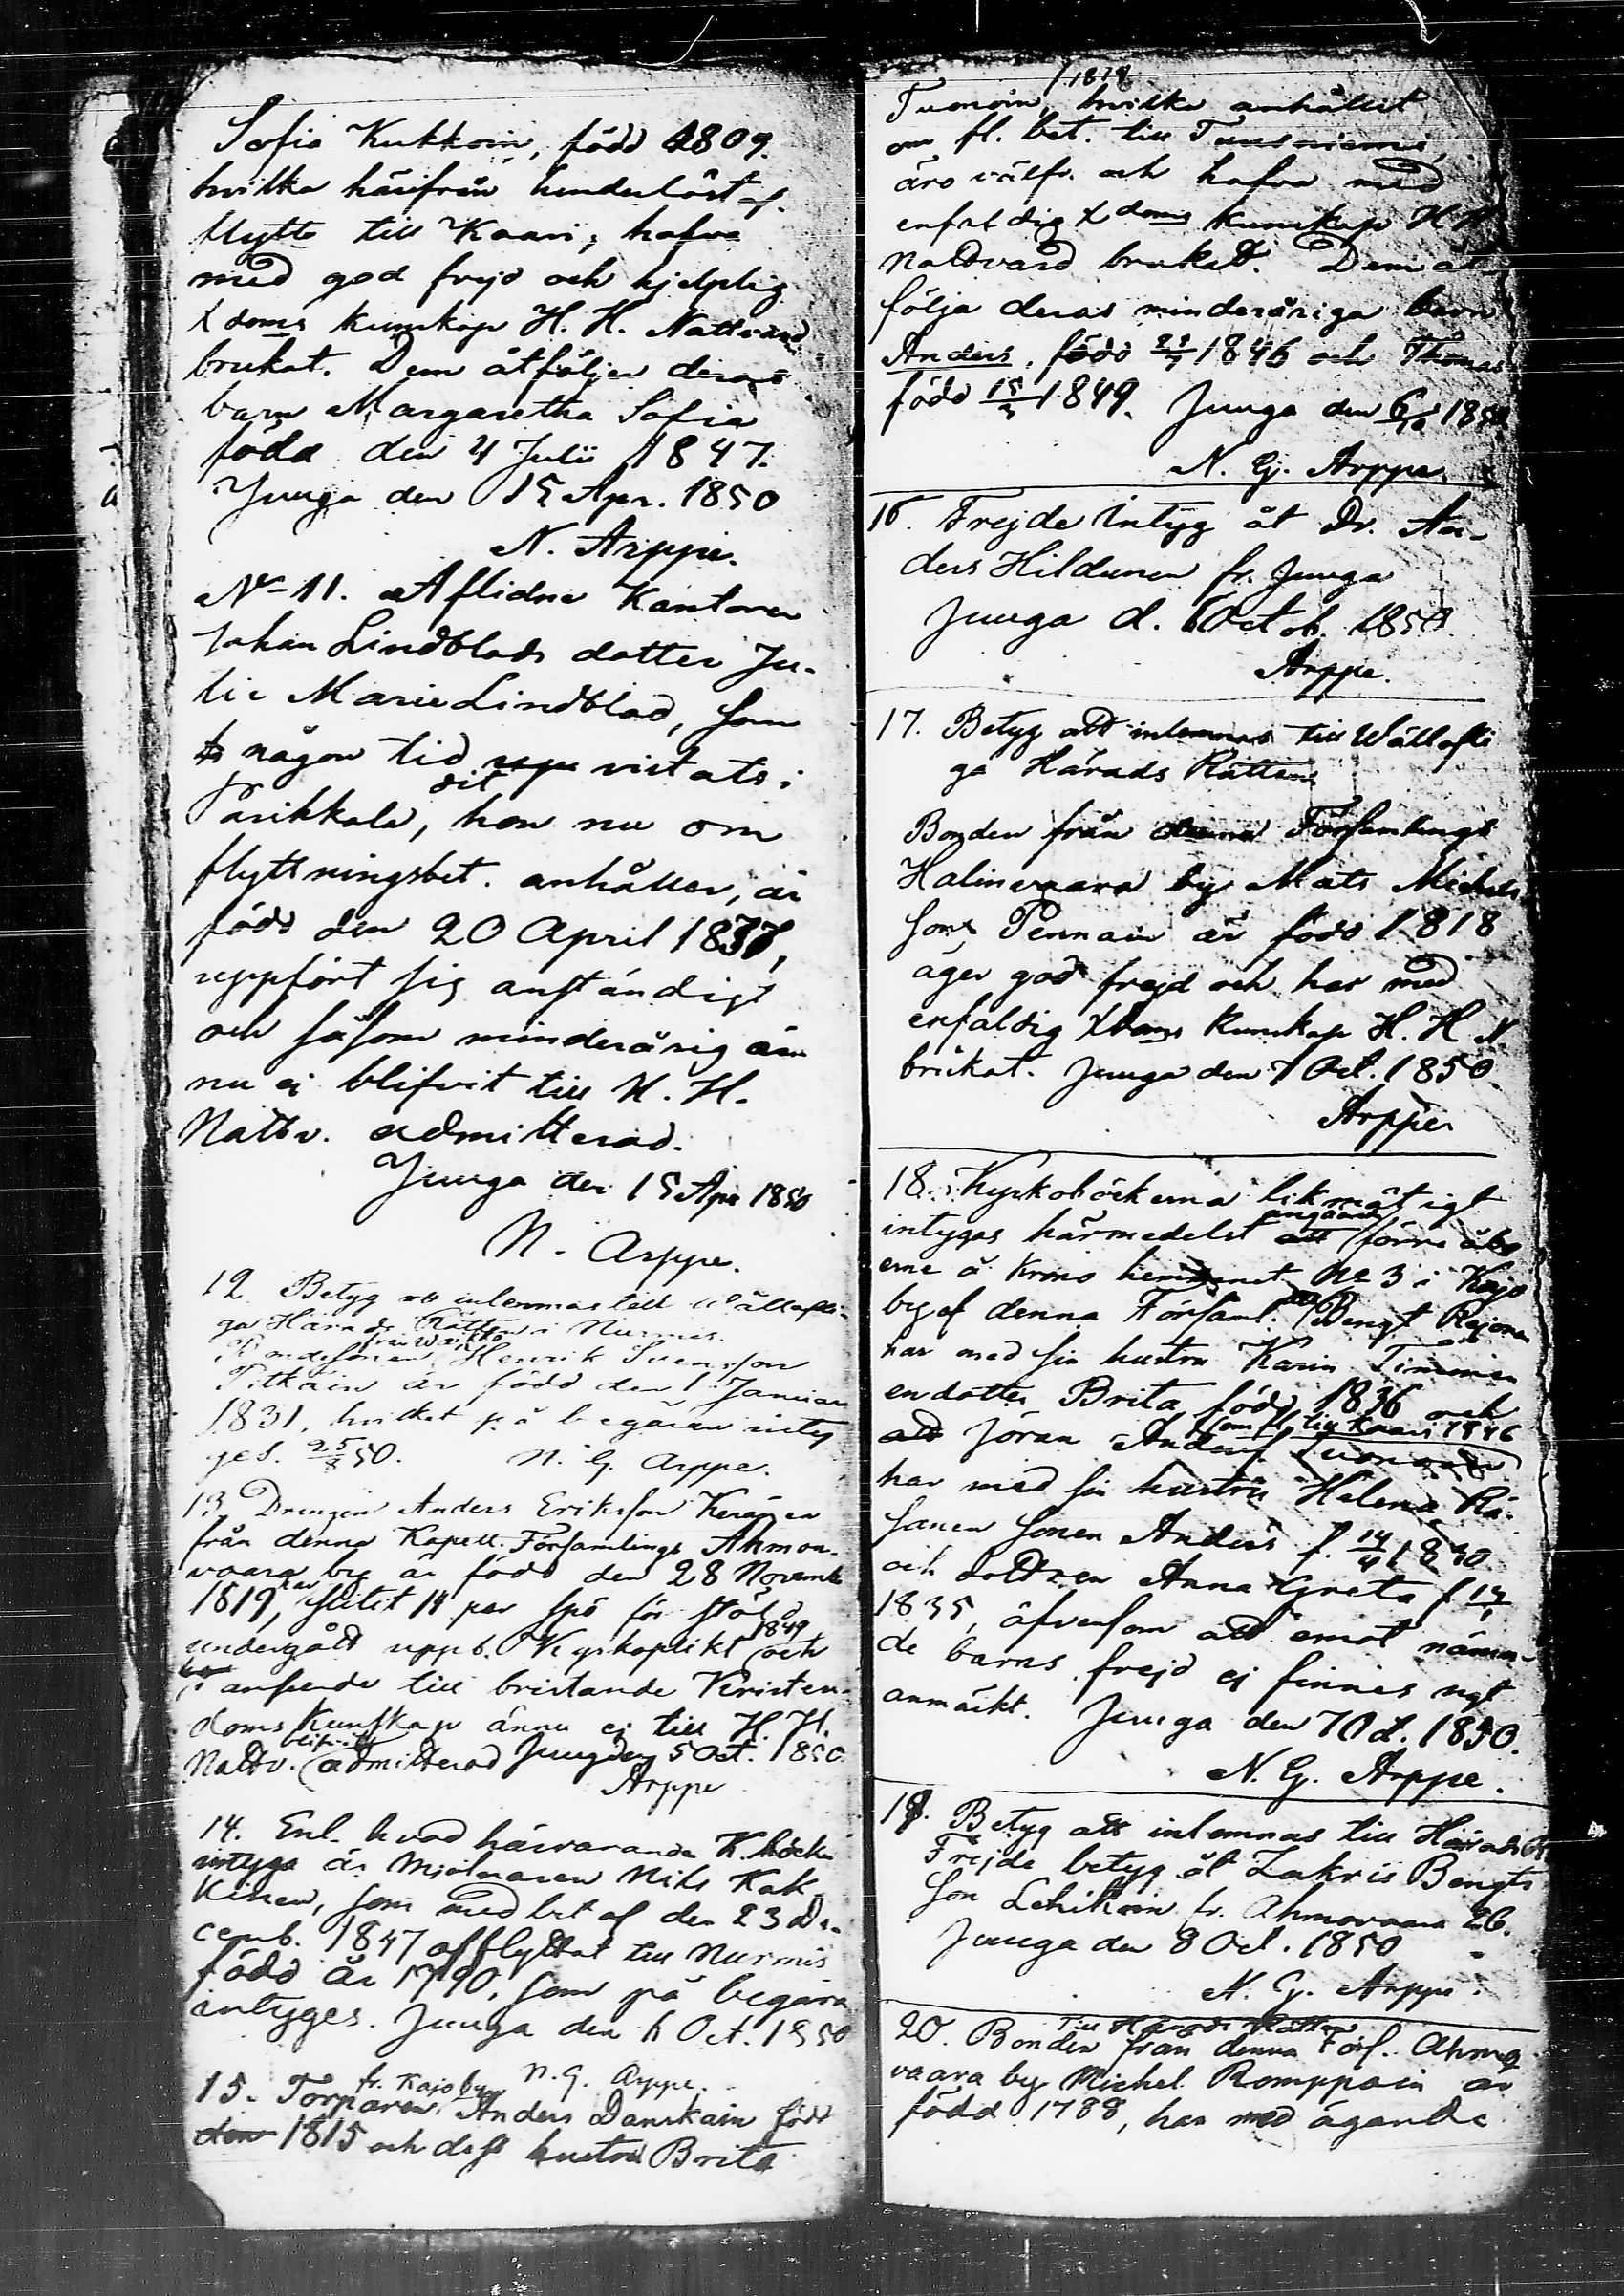 Sofia Kukkoin, född 1809.
hvilka härifrån hinderlöst af-
flytta till Kaavi, hafva
med god frejd och hjelplig
Xdoms kunskap H. H. Nattvard
brukat. Dem åtföljer deras
barn Margaretha Sofia
född den 4 Julii 1847.
Juuga den 15 Apr. 1850
N. Arppe.
No 11. Aflidne Kantoren
Johan Lindblads dotter Ju-
lie Marie Lindblad, som
någon tid vistats i
Parikkala, dit hon nu om
flyttningsbet. anhåller, är
född den 20 April 1837,
uppfört sig anständigt
och såsom minderårig än-
nu ej blifvit till H. H.
Nattv. admitterad.
Juuga den 15 Apr 1850
N. Arppe.
12. Betyg att inlemnas till Wällofli-
ga Härads Rätten i Nurmis.
Bondesonen från Weikko Henrik Svensson
Pitkäin är född den 1 Januari
1831, hvilket på begäran inty-
ges. 25/8 50. N. G. Arppe.
13. Drengen Anders Eriksson Keränen
från denna Kapell Församlings Ahmo-
vaara by är född den 28 Novemb.
1819, har slitit 14 par spö för stöld
undergått uppb. Kyrkoplikt 1849 och
i anseende till bristande Kristen-
doms Kunskap ännu ej till H. H.
Nattv. blifvit admitterad Juuga den 5 Oct. 1850
Arppe
14. Enl. hvad härvarande K. böcker
intyga är Mjölnaren Nils Kak
kinen, som med bet af den 23 De-
cemb. 1847 afflyttat till Nurmis
född år 1790, som på begäran
intyges. Juuga den 6 Oct. 1850
N. G. Arppe.
15. Torparen fr. Kajo by Anders Danskain född
den 1815 och dess hustru Brita
Tuonoin, 1819 hvilka anhållit
om fl. bet. till Tuusniemi,
äro välfr. och hafva med
enfaldig Xdoms kunskap H H
Nattvard brukat. Dem åt-
följa deras minderåriga barn
Anders, född 22/7 1846 och Thomas
född 15/3 1849. Juuga den 6/10 1850
N. G. Arppe.
16. Frejde Intyg åt Dr. An-
ders Hildunen fr. Juuga
Juuga d. 6 Octob. 1850
Arppe.
17. Betyg att inlemnas till Wällofli
ga Härads Rätten
Bonden från denna Församlings
Halinvaara by Mats Michels
son Pennain är född 1818
äger god frejd och har med
enfaldig Xdoms kunskap H. H. N
brukat. Juuga den 7 Oct. 1850
Arppe
18. Kyrkoböckerna likmätigt
intygas härmedelst angående förre åbo
erne å Krono hemmanet No 3 i Kajo
by af denna Församl. att Bengt Rejonen
har med sin hustru Karin Timonen
en dotter Brita född 1836 och
att Jöran Anderss. Tuononen som fl. till Kaavi 1846
har med sin hustru Helena Rä-
sänen sonen Anders f. 14/4 1830
och dottren Anna Greta f 17/1
1835, äfvensom att emot nämn-
de barns frejd ej finnes ngt
anmärkt. Juuga den 7 Oct. 1850.
N. G. Arppe.
19. Betyg att inlemnas till Härads R
Frejde betyg åt Zakris Bengts
son Lehikoin fr. Ahmovaara 26.
Juuga den 8 Oct. 1850
N. G. Arppe.
Till Härads Rätten
20. Bonden från denna Förs. Ahmo
vaara by Michel Romppain är
född 1788, har med ägande